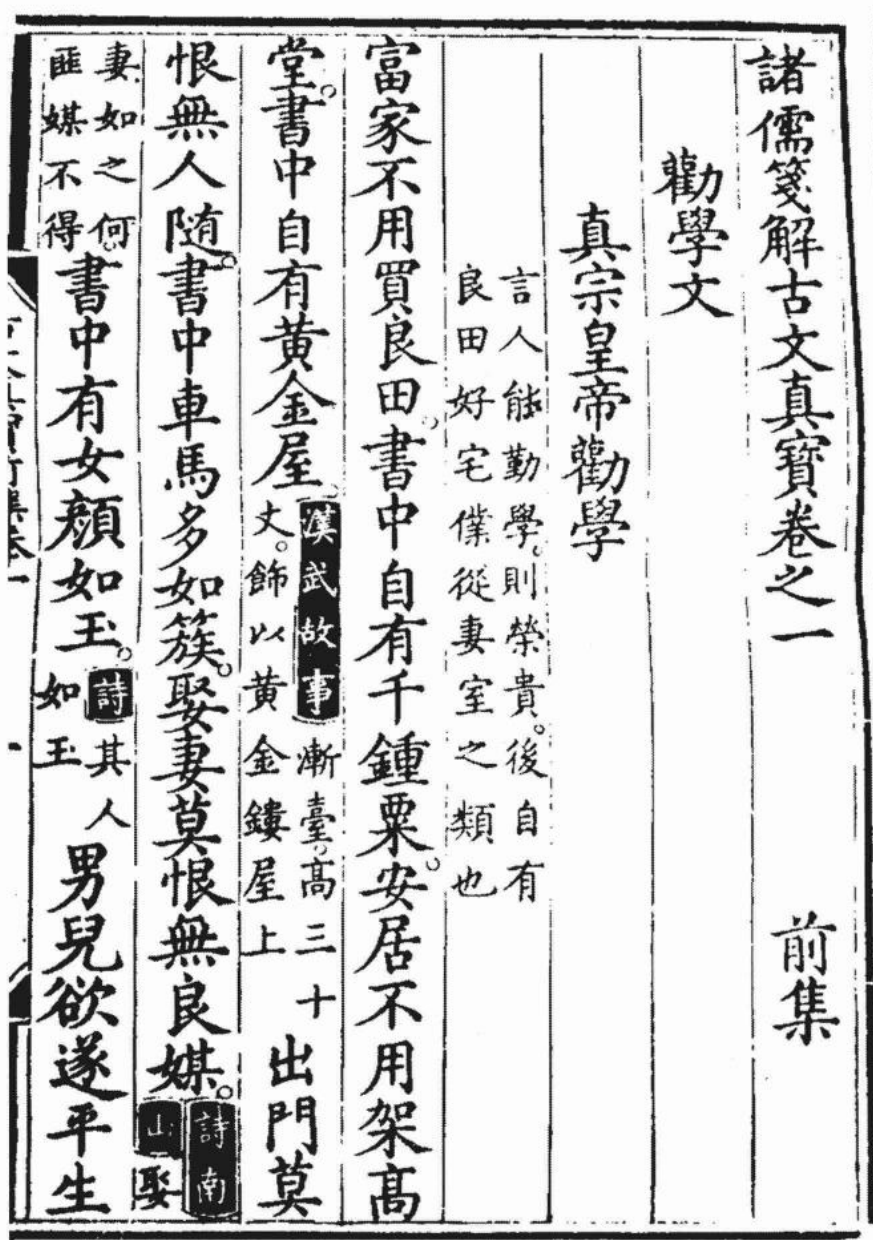 諸儒箋解古文真寶卷之一　前集
勸學文
真宗皇帝勸學
言人能勤學。則榮貴。後自有
良田好宅僕從妻室之類也
富家不用買良田。書中自有千鍾粟。安居不用架高
堂。書中自有黃金屋。漢武故事漸臺。高三十丈。飾以黃金鏤屋上出門莫
恨無人隨。書中車馬多如簇。娶妻莫恨無良媒。詩南山娶
妻如之何。匪媒不得書中有女顏如玉。詩其人如玉男兒欲遂平生